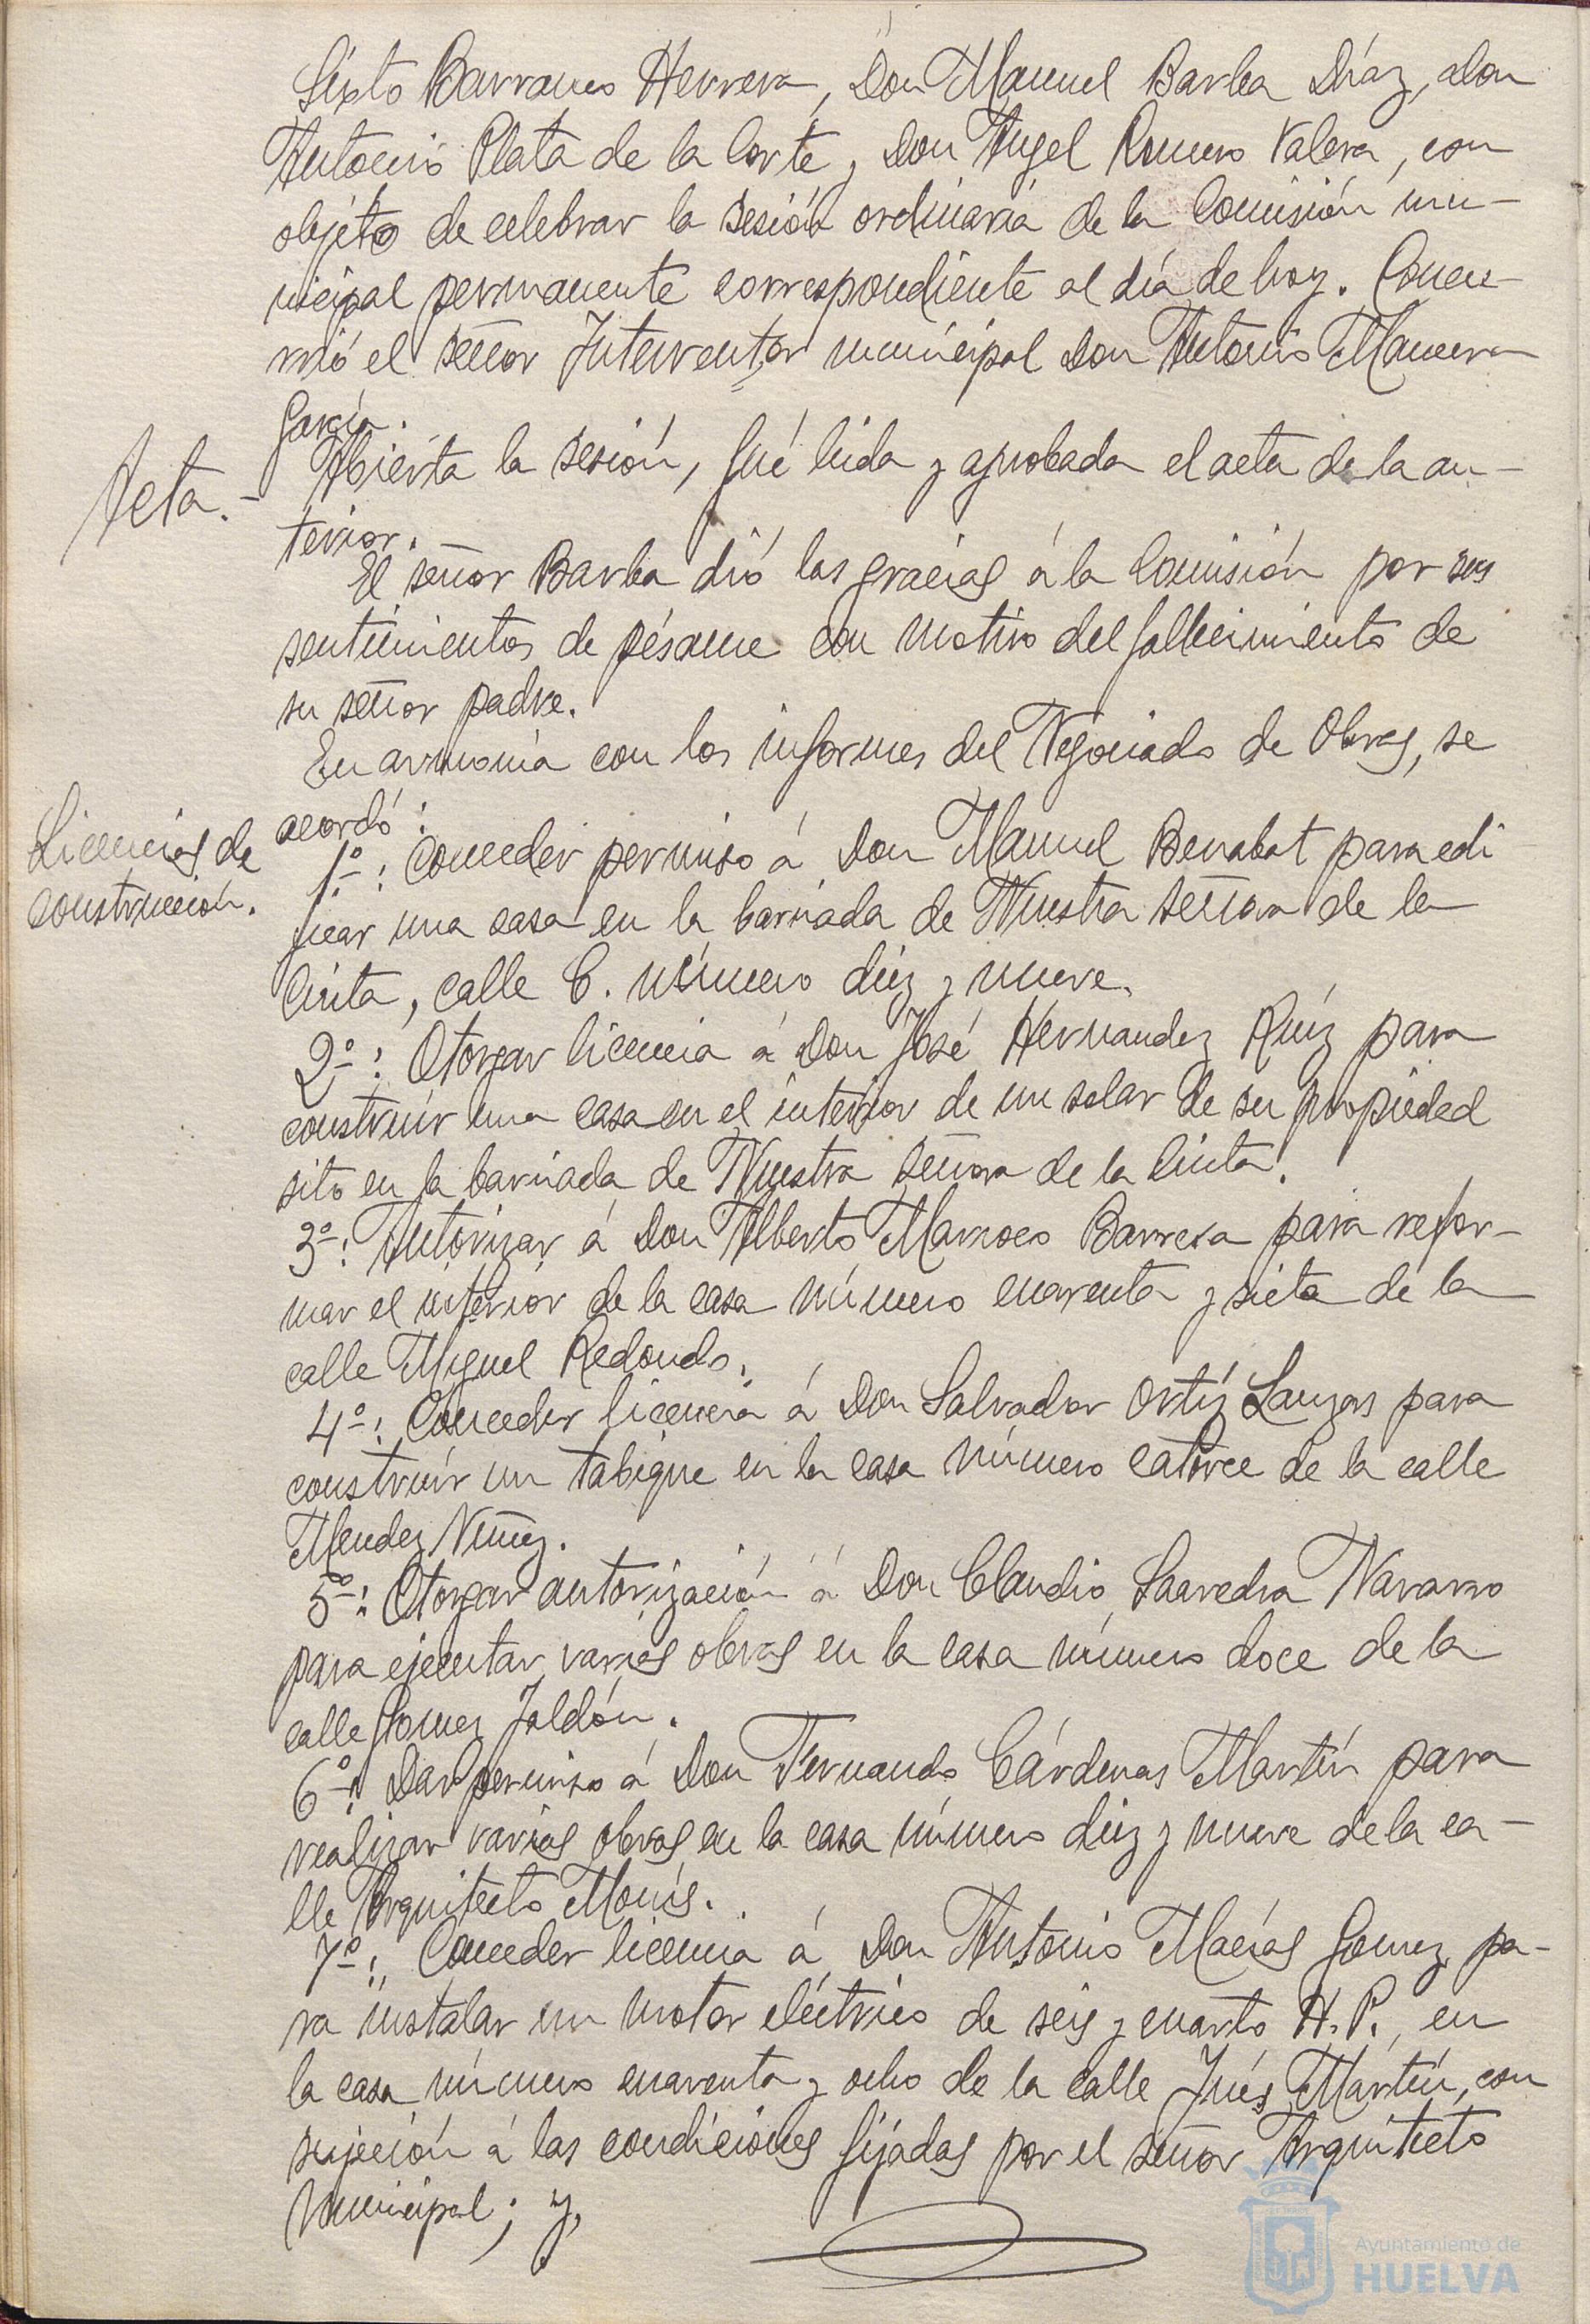 Sixto Barranco Herrera, Don Manuel Barba Díaz, don
Antonio Plata de la Corte y Don Angel Romero Valera, con
objeto de celebrar la sesión ordinaria de la Comisión mu-
nicipal permanente correspondiente al día de hoy. Concu-
rrió el señor Interventor municipal Don Antonio Mancera
García.
Acta.-
Abierta la sesión, fué leida y aprobada el acta de la an-
terior.
El señor Barba dió las gracias á la Comisión por sus
sentimientos de pésame con motivo del fallecimiento de
su señor padre.
En armonía con los informes del Negociado de Obras, se
acordó:
Licencias de
construcción.
1º: Conceder permiso á Don Manuel Benabat para edi
ficar una casa en la barriada de Nuestra señora de la
Cinta, calle C. número diez y nueve.
2º: Otorgar licencia á Don José Hernandez Ruíz para
construír una casa en el interior de un solar de su propiedad
sito en la barriada de Nuestra señora de la Cinta.
3º: Autorizar á Don Alberto Marroco Barrera para refor-
mar el interior de la casa número cuarenta y siete de la
calle Miguel Redondo.
4º: Conceder licencia á Don Salvador Ortíz Lanzas para
construír un tabique en la casa número catorce de la calle
Mendez Nuñez.
5º: Otorgar autorización á Don Claudio Saavedra Navarro
para ejecutar varias obras en la casa número doce de la
calle Gomez Jaldón.
6º: Dar permiso á Don Fernando Cárdenas Martín para
realizar varias obras en la casa número diez y nueve de la ca-
lle Arquitecto Monís.
7º: Conceder licencia á Don Antonio Macías Gomez pa-
ra instalar un motor eléctrico de seis y cuarto H.P. en
la casa número cuarenta y ocho de la calle Inés Martín, con
sujeción á las condiciones fijadas por el señor Arquitecto
Municipal; y,
Ayuntamiento de
HUELVA